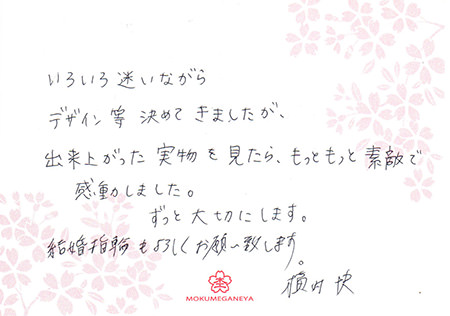 いろいろ迷いながら
デザイン等 決めてきましたが、
出来上がった実物を見たら、もっともっと素敵で
感動しました。
ずっと大切にします。
結婚指輪もよろしくお願い致します。
MOKUMEGANEYA